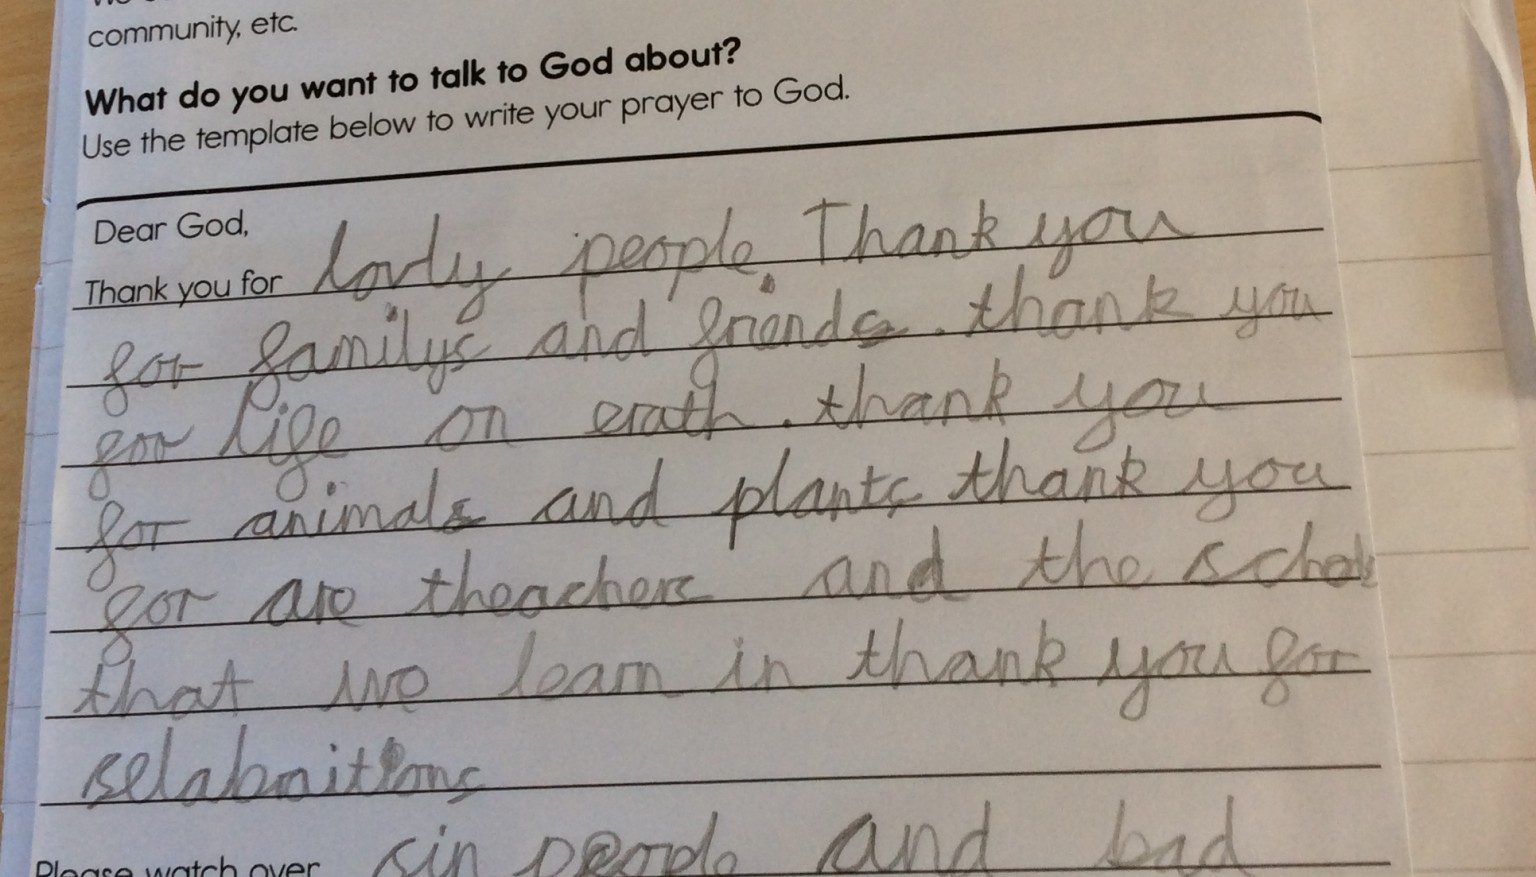 community, etc.
What do you want to talk to God about?
Use the template below to write your prayer to God.
Dear God,
Thank you for lovly people. Thank you
for familys and friends. thank you
for life on erath. thank you
for animals and plants thank you
for are theachers and the schol
that we learn in thank you for
selabraitions
Please watch over sin people and bad